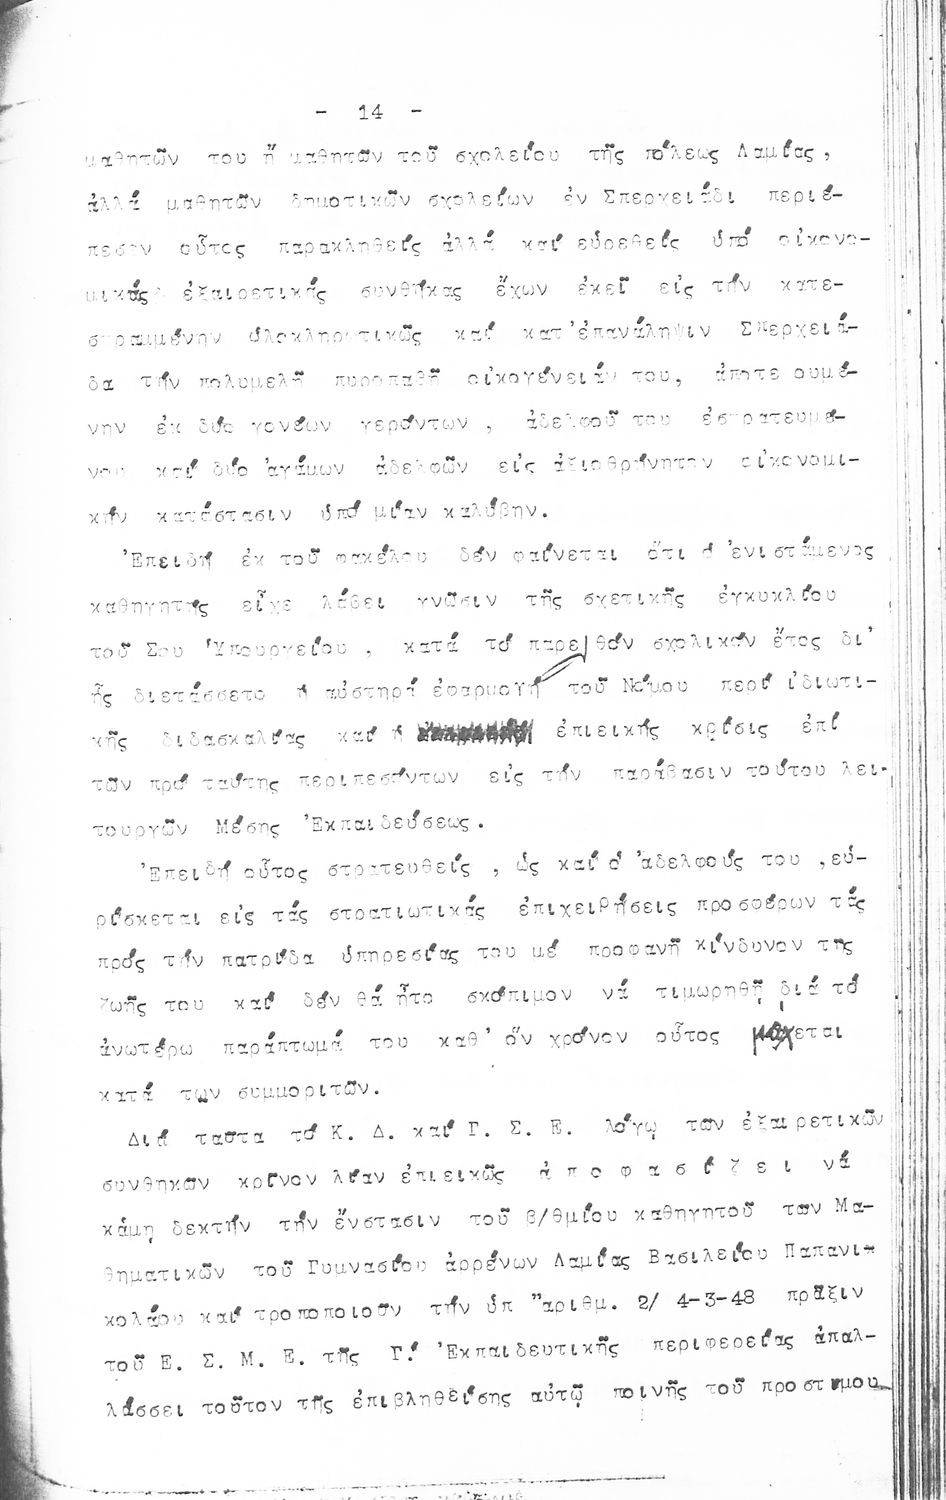 - 14 -
μαθητῶν του ἤ μαθητῶν τοῦ σχολείου τῆς πόλεως Λαμίας,
ἀλλά μαθητῶν δημοτικῶν σχολείων ἐν Σπερχειάδι περιέ-
πεσεν οὗτος παρακληθείς ἀλλά καί εὑρεθείς ὑπό οἰκονο-
μικάς ἐξαιρετικάς συνθήκας ἔχων ἐκεῖ εἰς τήν κατε-
στραμμένην ὁλοκληρωτικῶς καί κατ'ἐπανάληψιν Σπερχειά-
δα τήν πολυμελῆ πυροπαθῆ οἰκογένειάν του, ἀποτε ουμέ-
νην ἐκ δύο γονέων γερόντων, ἀδελφοῦ του ἐστρατευμέ-
νου καί δύο ἀγάμων ἀδελφῶν εἰς ἀξιοθρήνητον οἰκονομι-
κήν κατάστασιν ὑπό μίαν καλύβην.
Ἐπειδή ἐκ τοῦ φακέλου δέν φαίνεται ὅτι ὁ ἐνιστάμενος
καθηγητής εἶχε λάβει γνῶσιν τῆς σχετικῆς ἐγκυκλίου
τοῦ Σου Ὑπουργείου, κατά τό παρελθόν σχολικόν ἔτος δι'
ἧς διετάσσετο ἡ αὐστηρά ἐφαρμογή τοῦ Νόμου περί ἰδιωτι-
κῆς διδασκαλίας καί ἡ ἐπιεικής κρίσις ἐπί
τῶν πρό ταύτης περιπεσόντων εἰς τήν παράβασιν τούτου λει-
τουργῶν Μέσης Ἐκπαιδεύσεως.
Ἐπειδή οὗτος στρατευθείς, ὡς καί ὁ ἀδελφούς του, εὑ-
ρίσκεται εἰς τάς στρατιωτικάς ἐπιχειρήσεις προσφέρων τάς
πρός τήν πατρίδα ὑπηρεσίας του μέ προφανῆ κίνδυνον τῆς
ζωῆς του καί δέν θά ἦτο σκόπιμον νά τιμωρηθῇ διά τό
ἀνωτέρω παράπτωμά του καθ' ὅν χρόνον οὗτος μάχεται
κατά των συμμοριτῶν.
Διά ταῦτα τό Κ. Δ. καί Γ. Σ. Ε. λόγῳ των ἐξαιρετικῶν
συνθηκῶν κρῖνον λίαν ἐπιεικῶς ἀ π ο φ α σ ί ζ ε ι νά
κάμῃ δεκτήν τήν ἔνστασιν τοῦ β/θμίου καθηγητοῦ των Μα-
θηματικῶν τοῦ Γυμνασίου ἀρρένων Λαμίας Βασιλείου Παπανι-
κολάου καί τροποποιοῦν τήν ὑπ "αριθμ. 2/ 4-3-48 πρᾶξιν
τοῦ Ε. Σ. Μ. Ε. τῆς Γ! Ἐκπαιδευτικῆς περιφερείας ἀπαλ-
λάσσει τοῦτον τῆς ἐπιβληθείσης αὐτῷ ποινῆς τοῦ προστίμου